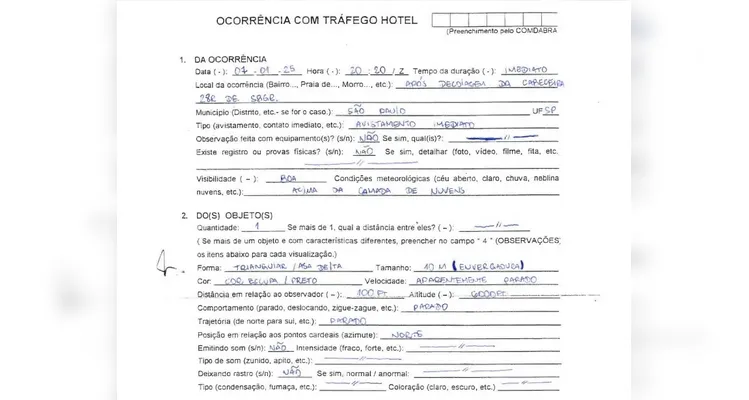 OCORRÊNCIA COM TRÁFEGO HOTEL
(Preenchimento pelo COMDABRA
1. DA OCORRÊNCIA
Data ( - ): 07-01-25 Hora ( - ): 20:20/Z Tempo da duração ( - ): IMEDIATO
Local da ocorrência (Bairro..., Praia de..., Morro..., etc.): APÓS DECOLAGEM DA CABECEIRA
28R DE SBGR.
Município (Distrito, etc.- se for o caso.): SÃO PAULO UF SP
Tipo (avistamento, contato imediato, etc.): AVISTAMENTO IMEDIATO
Observação feita com equipamento(s)? (s/n): NÃO Se sim, qual(is)?: —//—
Existe registro ou provas físicas? (s/n): NÃO Se sim, detalhar (foto, vídeo, filme, fita, etc.
—//—
Visibilidade ( – ): BOA Condições meteorológicas (céu aberto, claro, chuva, neblina
nuvens, etc.): ACIMA DA CAMADA DE NUVENS
2. DO(S) OBJETO(S)
Quantidade: 1 Se mais de 1, qual a distância entre eles? ( – ): —//—
( Se mais de um objeto e com características diferentes, preencher no campo " 4 " (OBSERVAÇÕES)
os itens abaixo para cada visualização.)
Forma: TRIANGULAR / ASA DELTA Tamanho: 10 M (ENVERGADURA)
Cor: COR ESCURA / PRETO Velocidade: APARENTEMENTE PARADO
Distância em relação ao observador ( – ): 100 FT Altitude ( – ): 6000FT
Comportamento (parado, deslocando, zigue-zague, etc.): PARADO
Trajetória (de norte para sul, etc.): PARADO
Posição em relação aos pontos cardeais (azimute): NORTE
Emitindo som (s/n): NÃO Intensidade (fraco, forte, etc.): —//—
Tipo de som (zunido, apito, etc.): —//—
Deixando rastro (s/n): NÃO Se sim, normal / anormal: —//—
Tipo (condensação, fumaça, etc.): —//— Coloração (claro, escuro, etc.) —//—